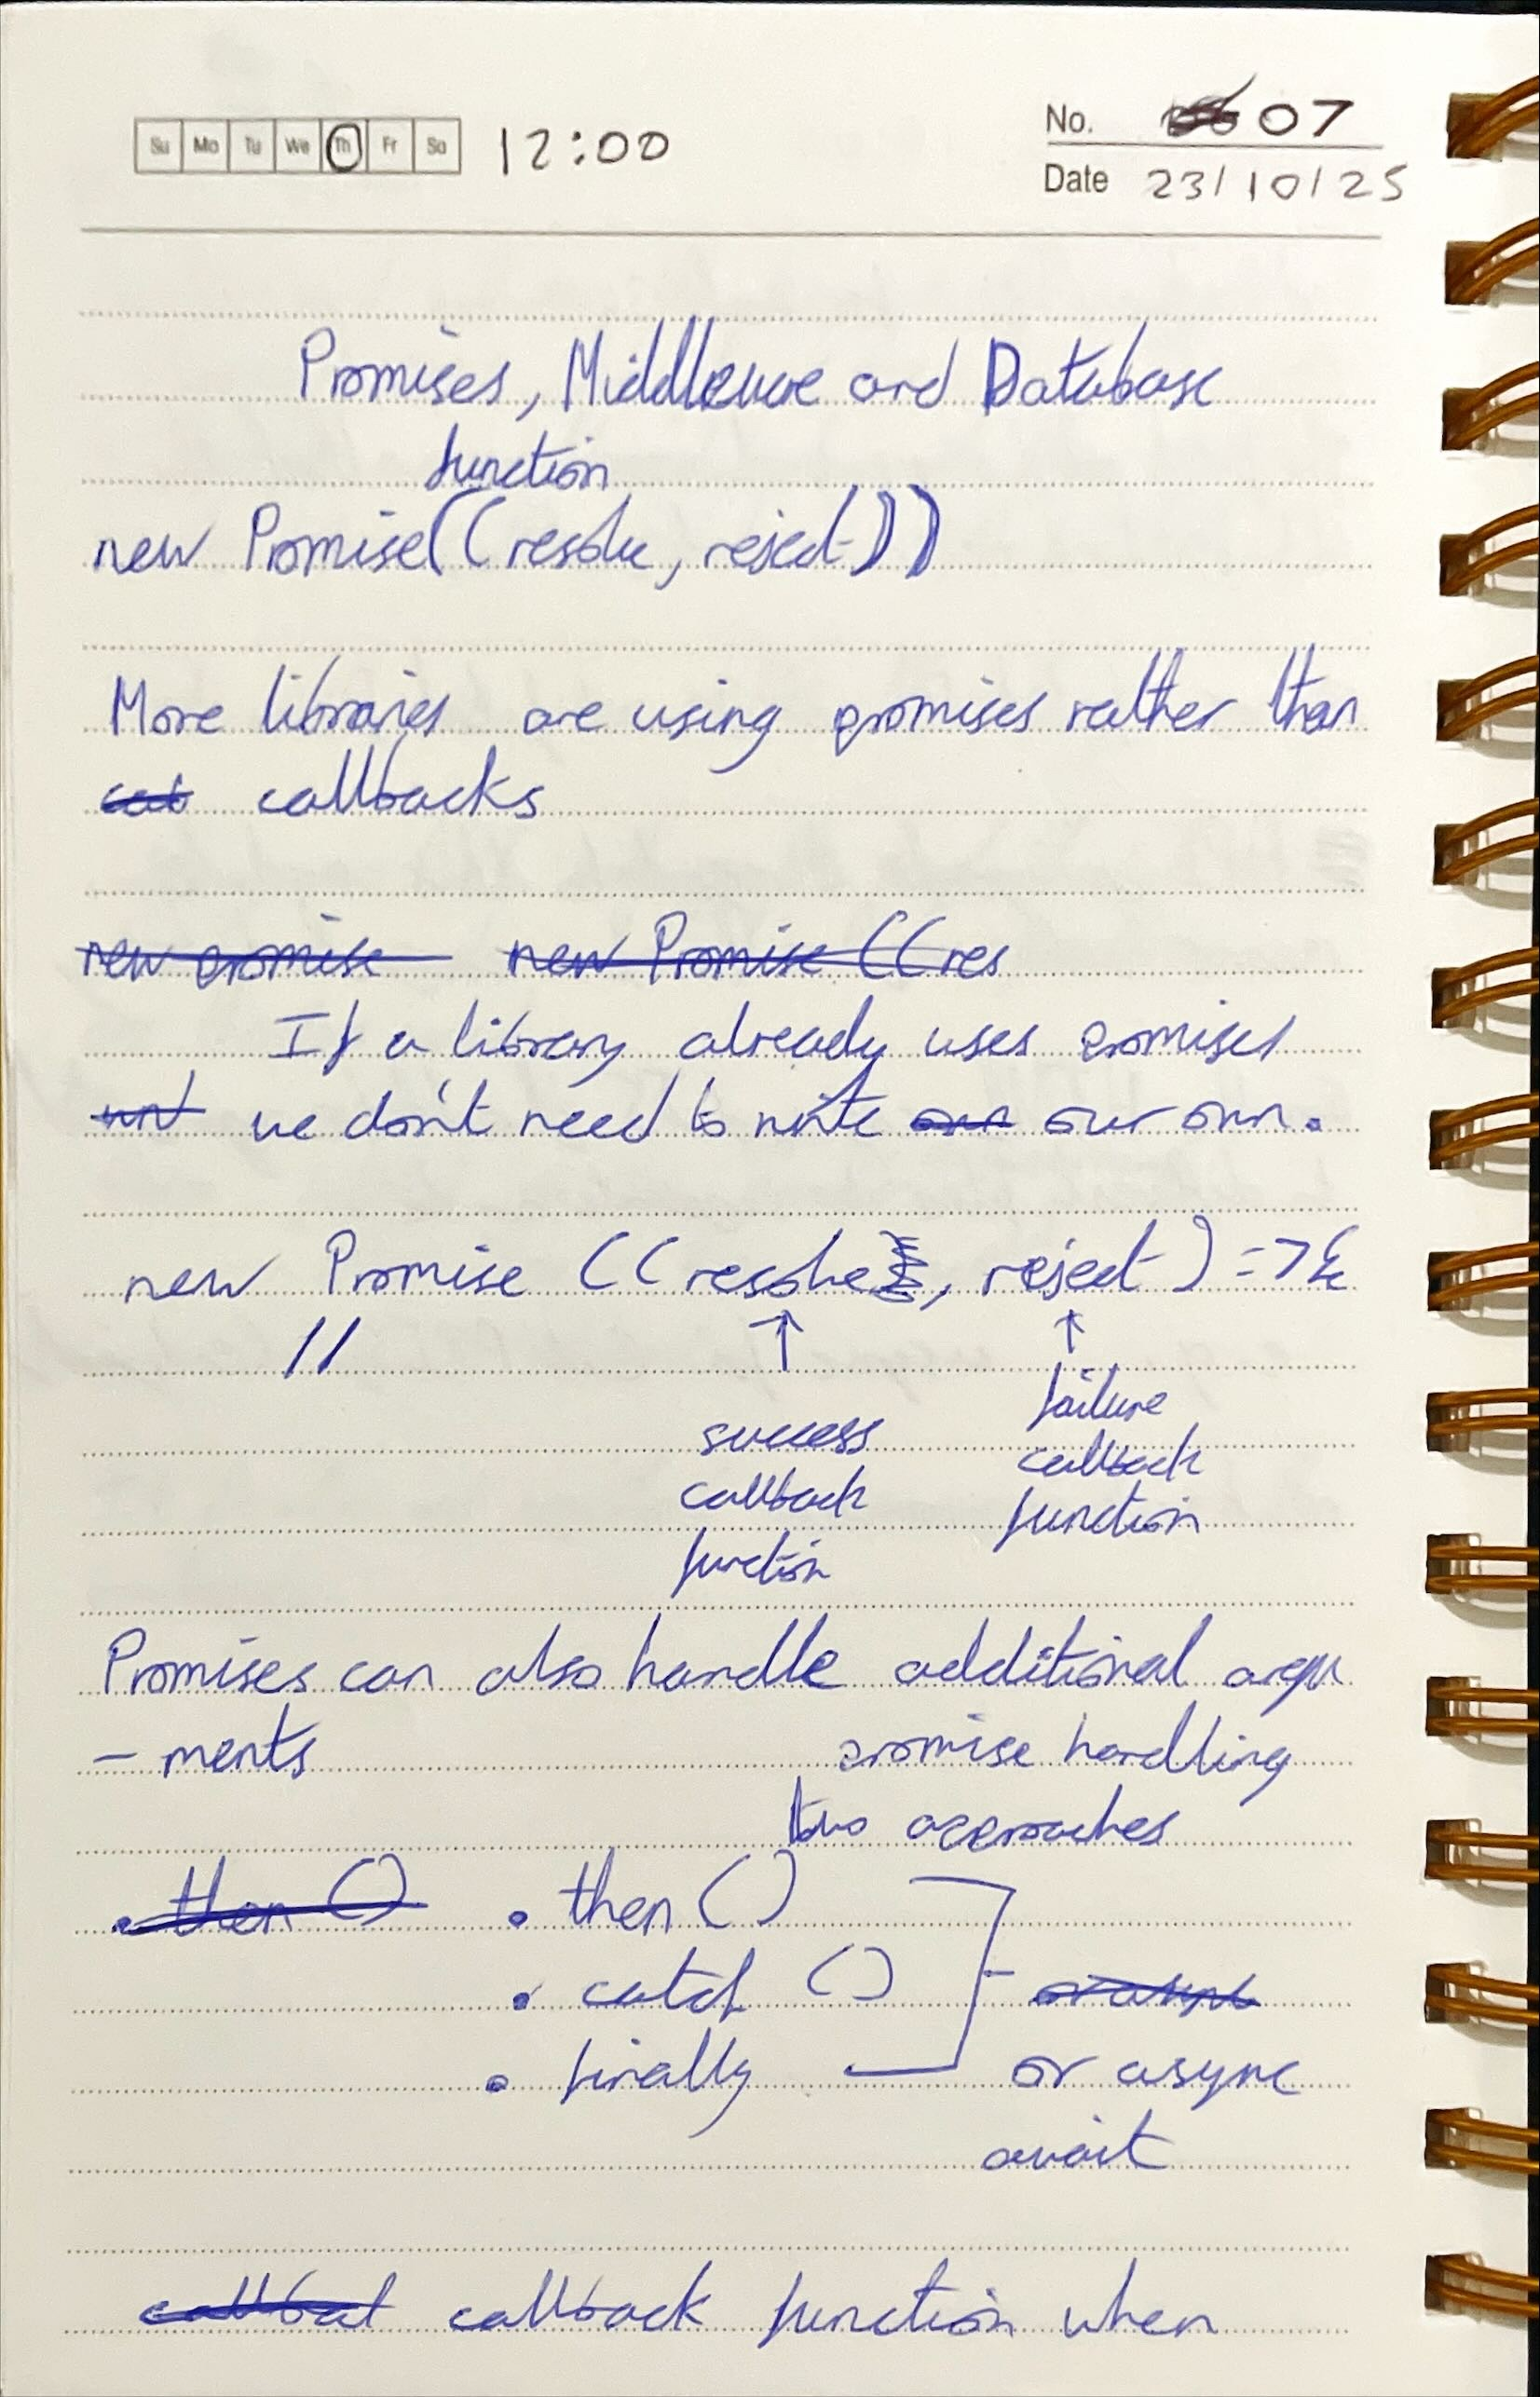 Su Mo Tu We Th Fr Sa 12:00
No. 07
Date 23/10/25
Promises, Middleware and Database
function
new Promise((resolve, reject))
More libraries are using promises rather than
cat callbacks
new promise new Promise ((res
If a library already uses promises
writ we don't need to write own our own.
new Promise ((resolve, reject) =>{
//
↑ ↑
success
callback
function
failure
callback
function
Promises can also handle additional argu
- ments
promise handling
two approaches
.then () .then ()
.catch ()
.finally
or async
or async
await
callbat callback function when